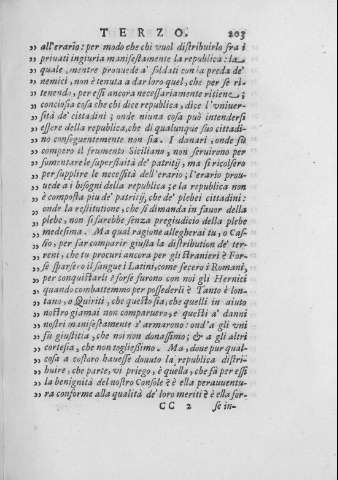 TERZO. 203
„ all'erario: per modo che chi vuol distribuirlo fra i
„ priuati ingiuria manifestamente la republica: la
„ quale, mentre prouede a' soldati con la preda de'
„ nemici, non è tenuta a dar loro quel, che per se ri-
„ tenendo, per essi ancora necessariamente ritiene;
„ conciosia cosa che chi dice republica, dice l'vniuer-
„ sità de' cittadini; onde niuna cosa può intendersi
„ essere della republica, che di qualunque suo cittadi-
„ no conseguentemente non sia. I danari, onde fù
„ compero il frumento Siciliano, non seruirono per
„ fomentare le superfluità de' patritij, ma si ricolsero
„ per supplire le necessità dell'erario; l'erario pro-
„ uede a i bisogni della republica; e la republica non
„ è composta più de' patritij, che de' plebei cittadini:
„ onde la restitutione, che si dimanda in fauor della
„ plebe, non si farebbe senza pregiudicio della plebe
„ medesima. Ma qual ragione allegherai tu, o Cas-
„ sio, per far comparir giusta la distribution de' ter-
„ reni, che tu procuri ancor per gli stranieri è For-
„ se sparsero il sangue i Latini, come fecero i Romani,
„ per conquistarli è forse furono con noi gli Hernici
„ quando combattemmo per possederli è Tanto è lon-
„ tano, o Quiriti, che questo sia, che quelli in aiuto
„ nostro giamai non comparuero, e questi a' danni
„ nostri manifestamente s'armarono: ond'a gli vni
„ fù giustitia, che noi non donassimo; & a gli altri
„ cortesia, che non togliessimo. Ma, doue pur qual-
„ cosa a costoro hauesse douuto la republica distri-
„ buire, che parte, vi priego, è quella, che fù per essi
„ la benignità del nostro Console è è ella perauuentu-
„ ra conforme alla qualità de' loro meriti è è ella for-
CC 2 se in-